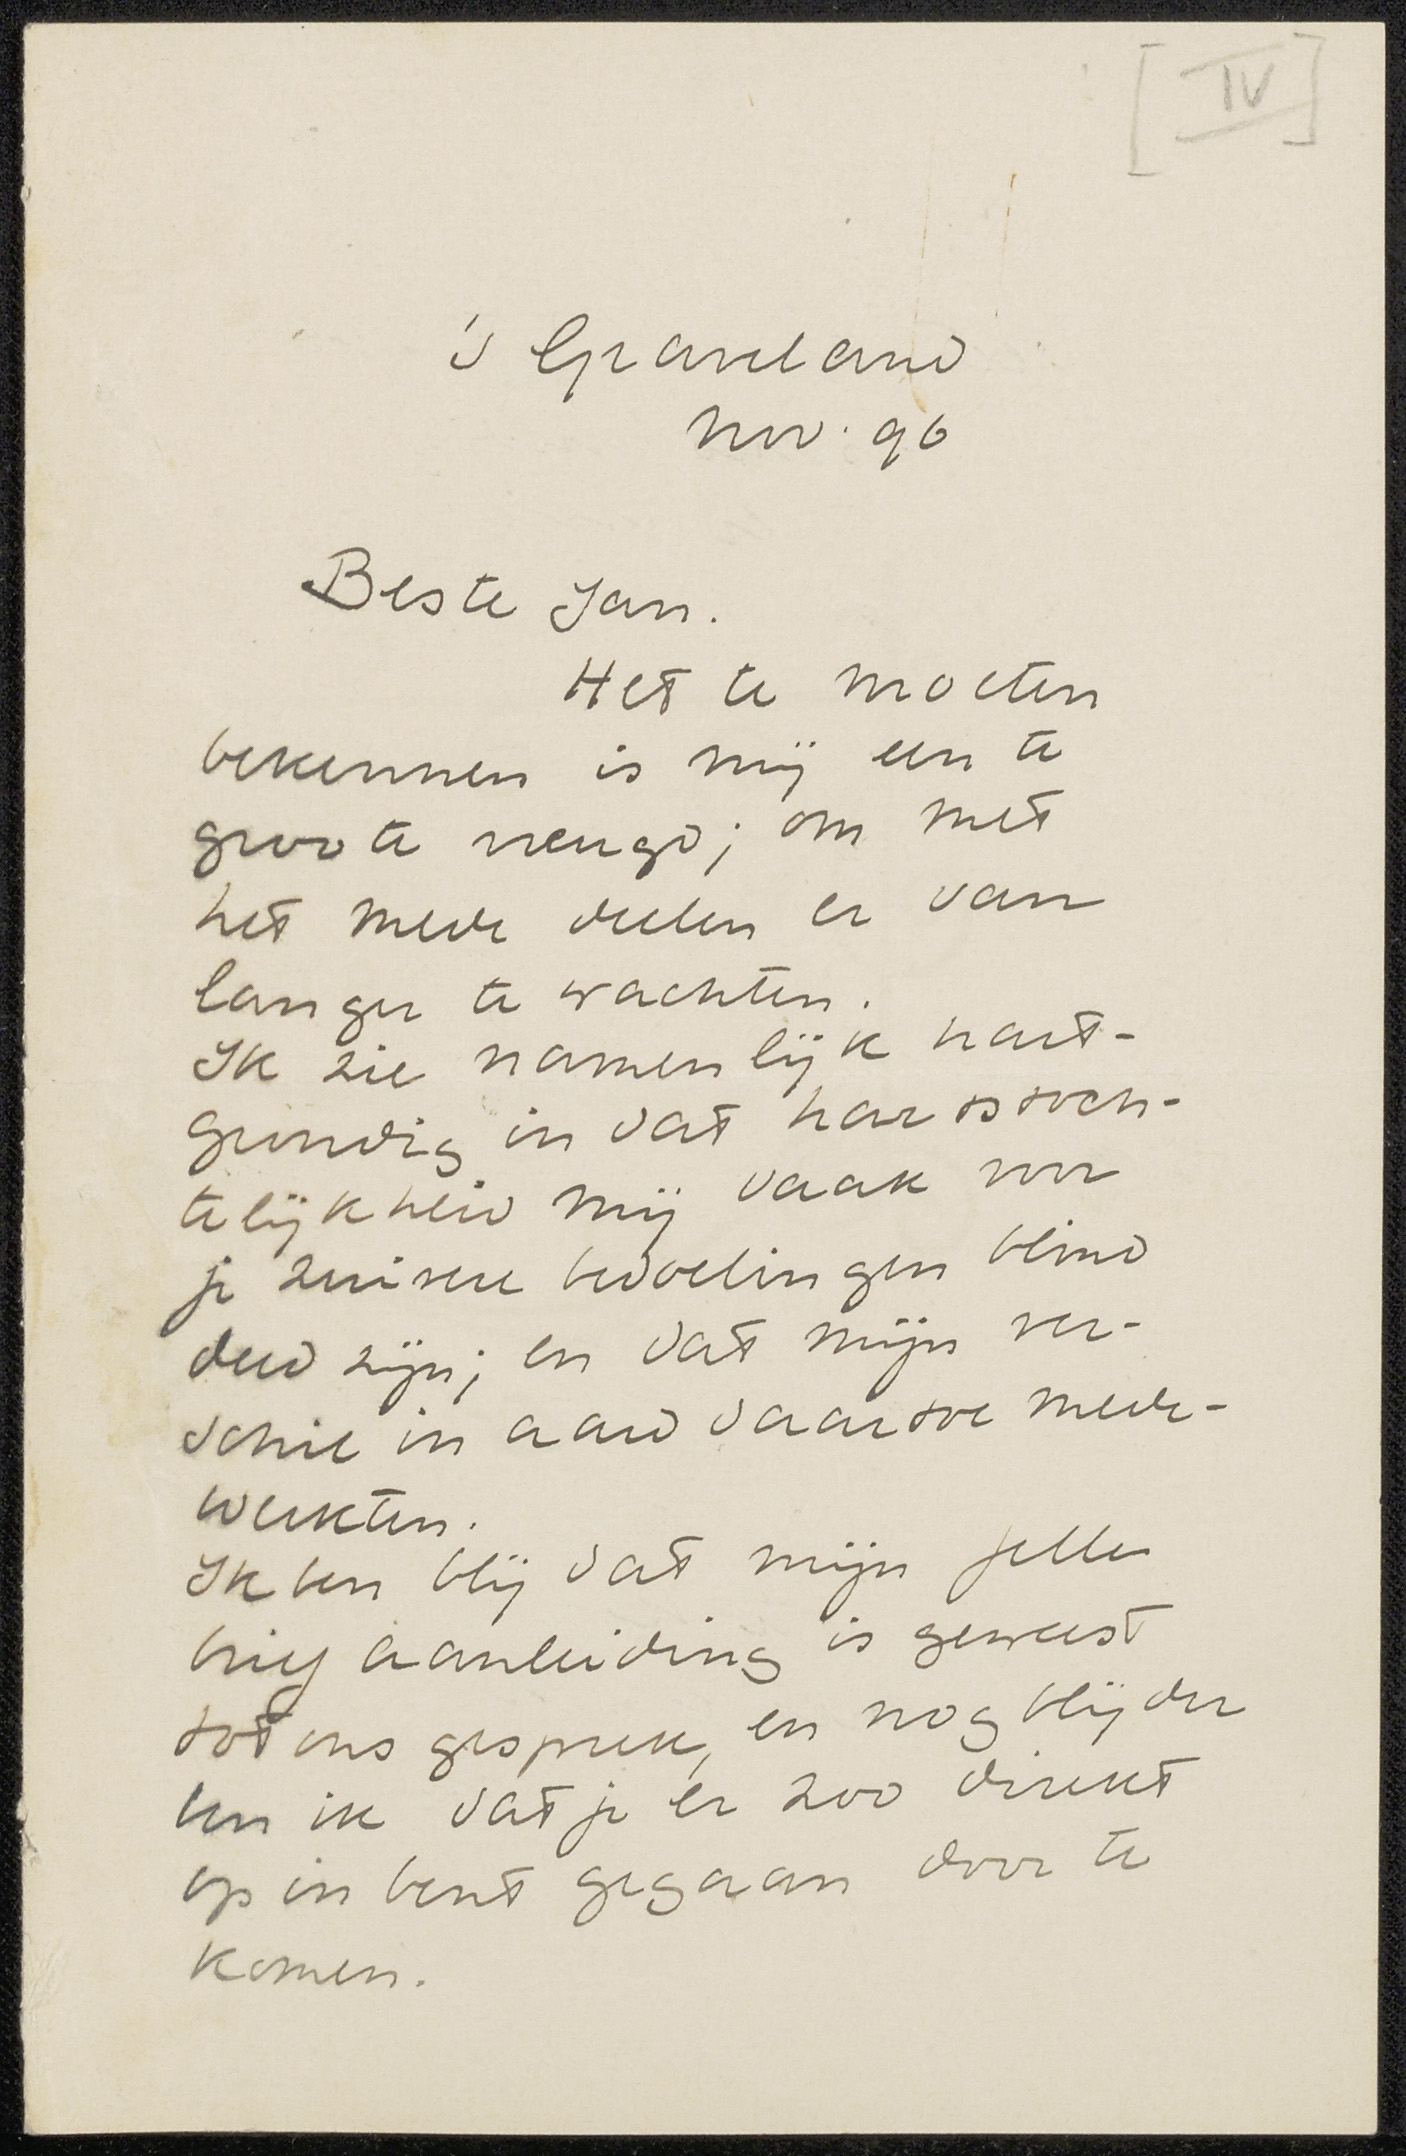 [IV]
's Graveland
Nov. 96
Beste Jan.
Het te moeten
bekennen is mij een te
groote vreugd; om met
het mede deelen er van
langer te wachten.
Ik zie namenlijk hart-
grundig in dat hartstoch-
telijkheid mij vaak voor
je zuivere bedoelingen blind
deed zijn; en dat mijn ver-
schil in aard daartoe mede-
werkten.
Ik ben blij dat mijn felle
brief aanleiding is geweest
tot ons gesprek, en nog blijder
ben ik dat je er zoo direkt
op in bent gegaan door te
komen.